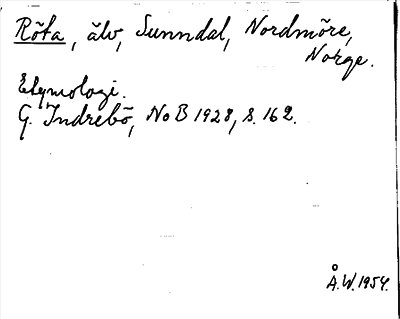 Rōta, älv, Sunndal, Nordmōre,
Norge.
Etymologi.
G. Indrebō, NoB 1928, s. 162.
Å.W. 1954.